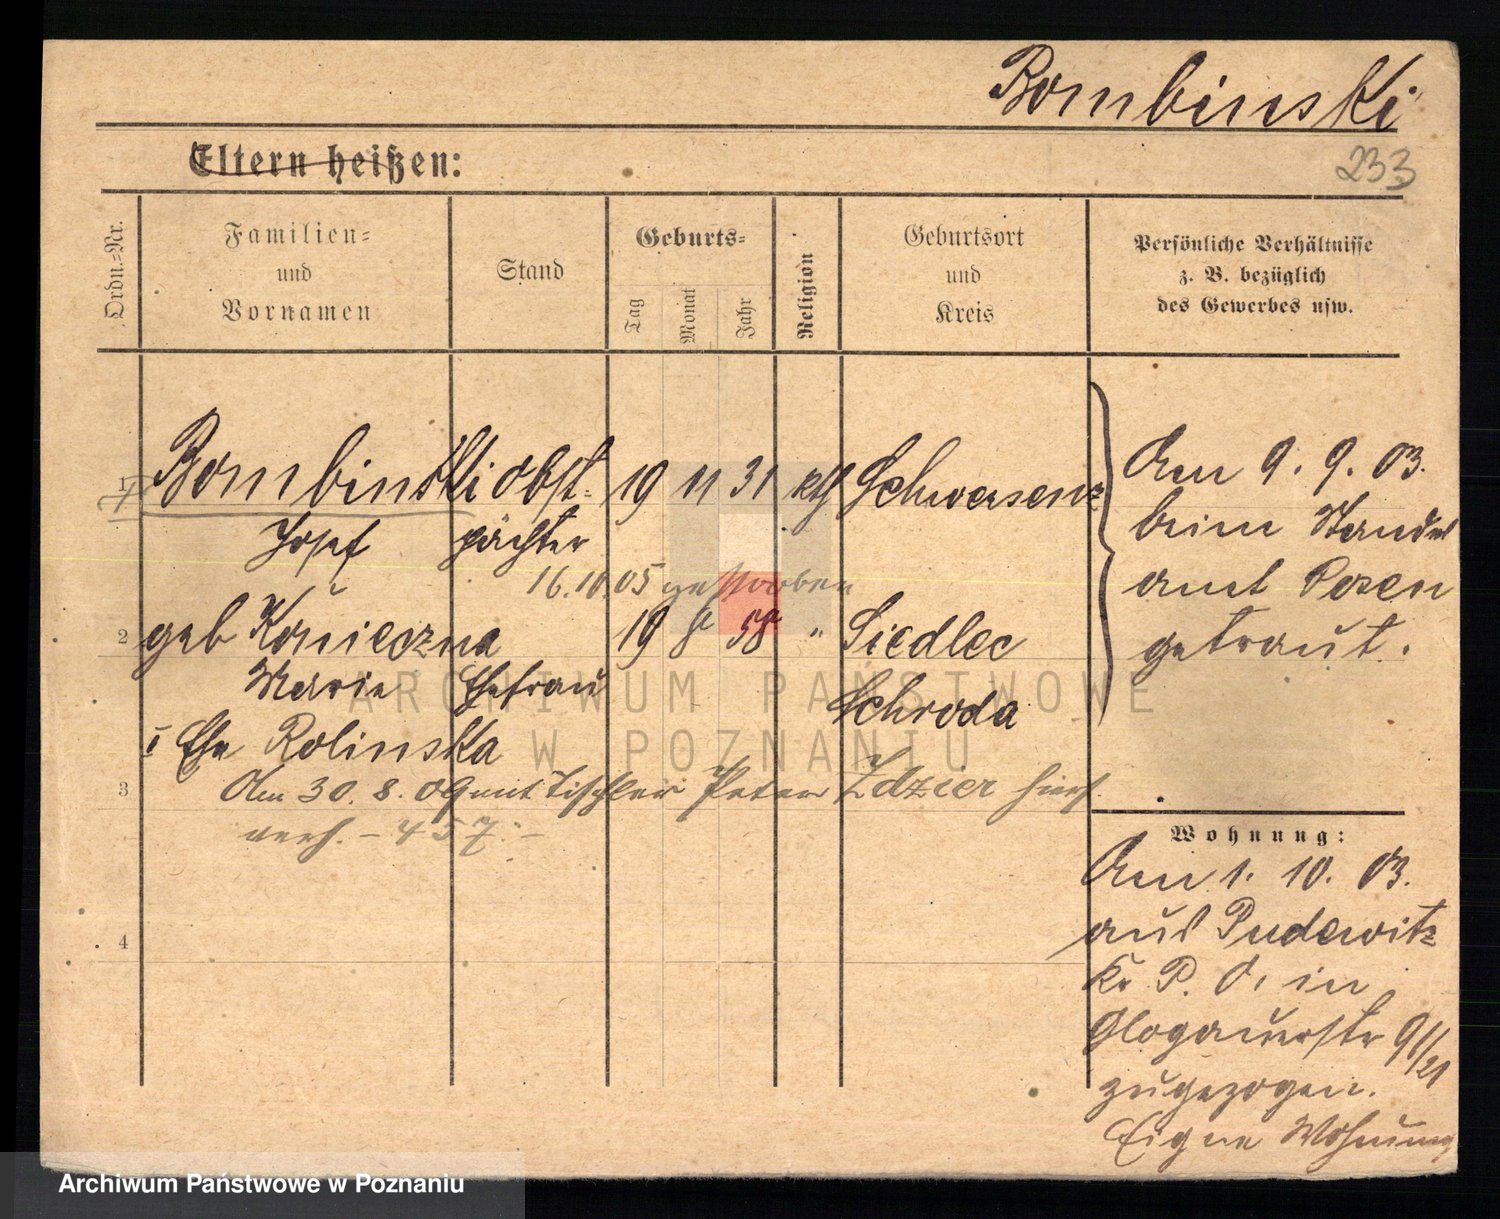 Bombinski
233
Eltern heißen:
Ordn.=Nr.
Familien=
und
Vornamen
Stand
Geburts=
Tag
Monat
Jahr
Religion
Geburtsort
und
Kreis
Persönliche Verhältnisse
z. B. bezüglich
des Gewerbes usw.
1 Bombinski obst- 19 11 31 kth Schwersenz
Josef pächter
16.10.05 gestorben
2 geb Konieczna 19 8 58 " Siedlec
Marie Ehefrau Schroda
I Ehe Rolinska
3 Am 30. 8. 09 mit Tischler Peter Zdzier hier
verh. - 457 -
4
Am 9. 9. 03.
beim Standes
amt Posen
getraut.
Wohnung:
Am 1. 10. 03.
aus Pudewitz
Kr P. O. in
Glogauerstr 91/21
zugezogen.
Eigne Wohnung
ARCHIWUM PAŃSTWOWE
W POZNANIU
Archiwum Państwowe w Poznaniu